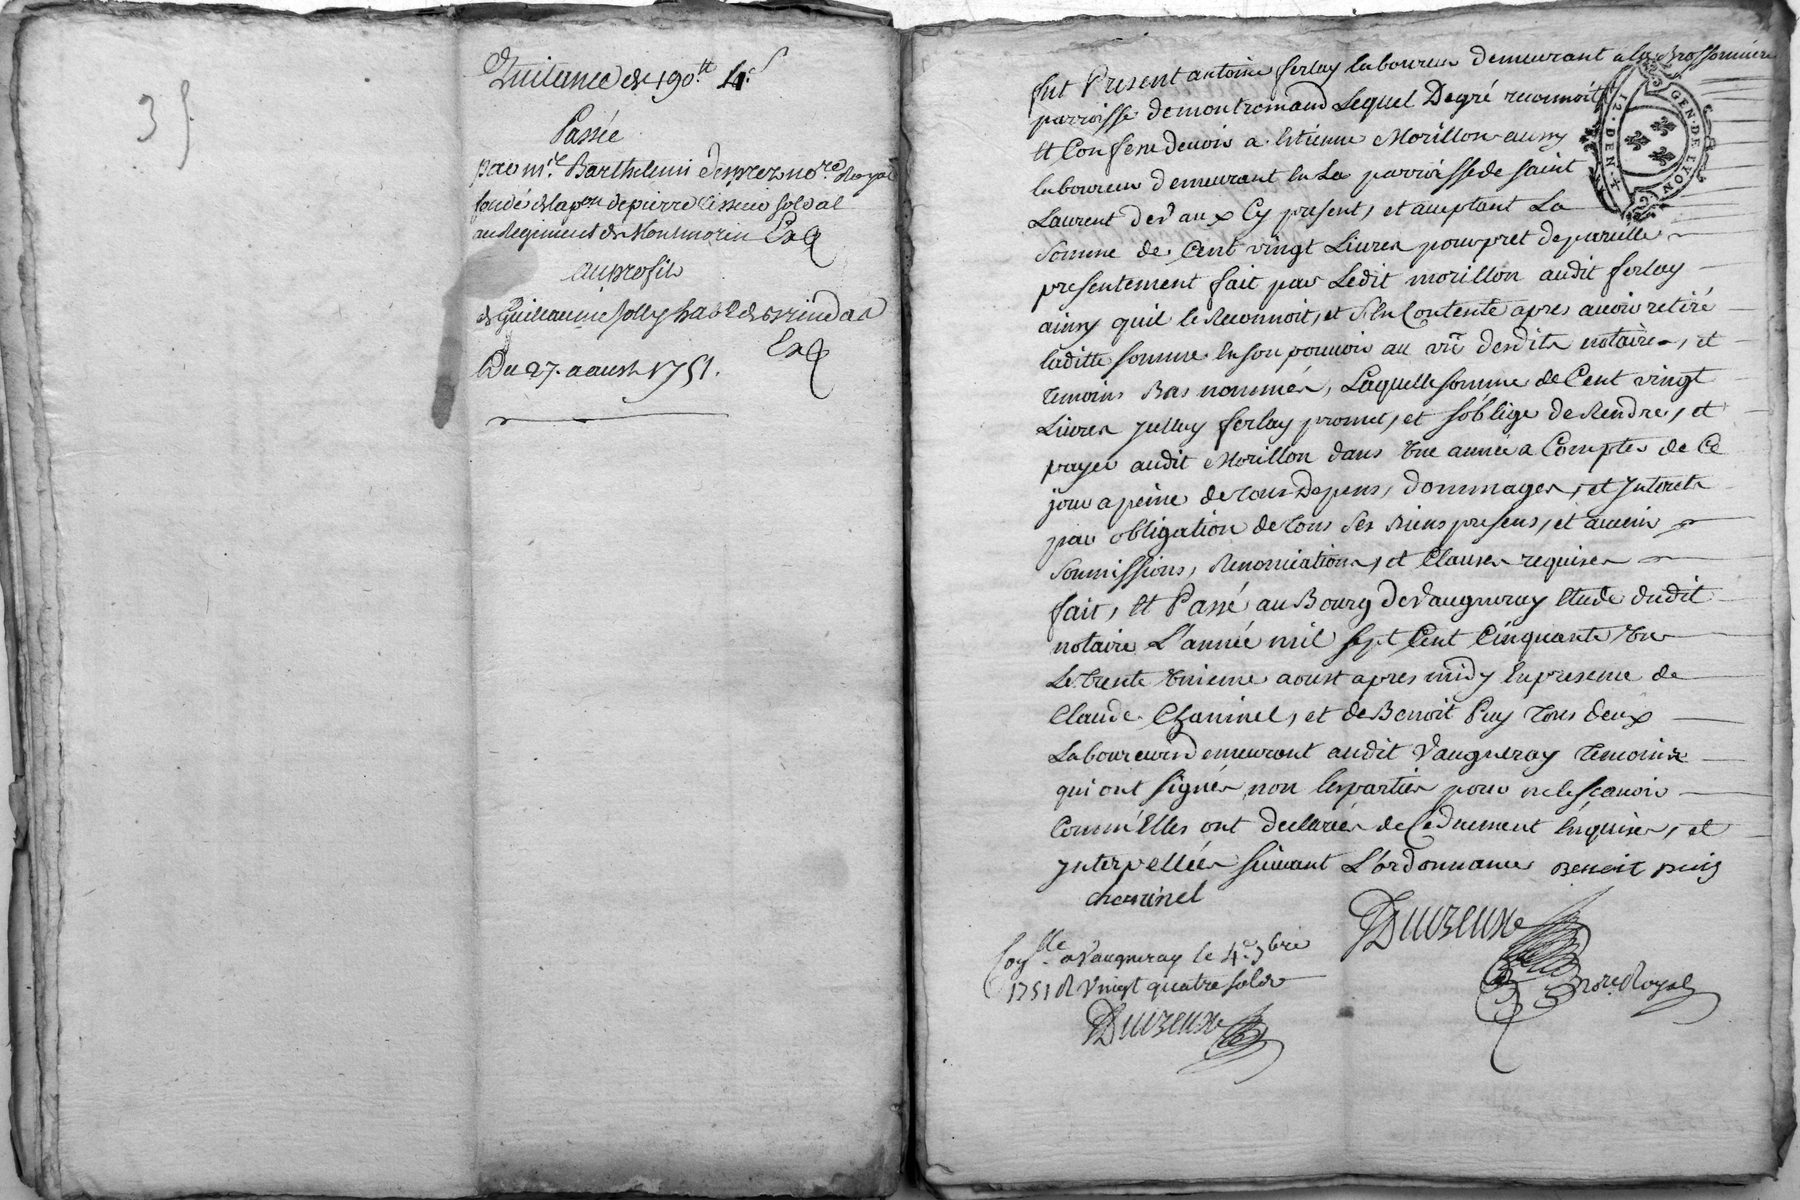 35
Quitance de 190ᵗᵗ 4ˢ
Passée
par mʳᵉ Barthelemi noʳᵉ Royal
fondé de la pᵒⁿ de pierre soldat
au Regiment de Montmorin
au profit
de Guillaume Jolly habt de
Du 27 aoust 1751.
fut Present antoine ferlay laboureur demeurant a la Brossonniere
parroisse de montromand Lequel De gré reconnoit
Et Confesse devoir a Etienne Morillon aussy
laboureur demeurant En La parroisse de saint
Laurent de Vaux Cy present, et aceptant La
somme de Cent vingt Livres pour pret de pareille
presentement fait par Ledit morillon audit ferlay
ainsy quil le Reconnoit, et s'En Contente apres avoir retiré
laditte somme En son pouvoir au vû desdits notaire, et
temoins Bas nommés, Laquelle somme de Cent vingt
Livres Jcelluy ferlay promet, et s'oblige de Rendre, et
payer audit Morillon dans Une année a Compter de Ce
jour a peine de tous Depens, dommages, et Jnterets
par obligation de tous ses Biens presens, et avenir
soumissions, Renonciations, et Clauses requises
fait, Et Passé au Bourg de Vaugneray Etude dudit
notaire L'année mil sept Cent Cinquante Un
Le trente Unieme aoust apres midy En presence de
Claude Chaninel, et de Benoit Puy tous deux
Laboureurs demeurant audit Vaugneray temoins
qui ont signés non les parties pour ne le scavoir
Comm'Elles ont declarées de Ce duement Enquises, et
Jnterpellées suivant L'ordonnance Benoit puis
chaninel
Coⁿˡˡᵉ a Vaugneray le 4ᵉ 7bre
1751 R Vingt quatre sols
noʳᵉ Royal
GEN · DE LYON
12 · DEN ·